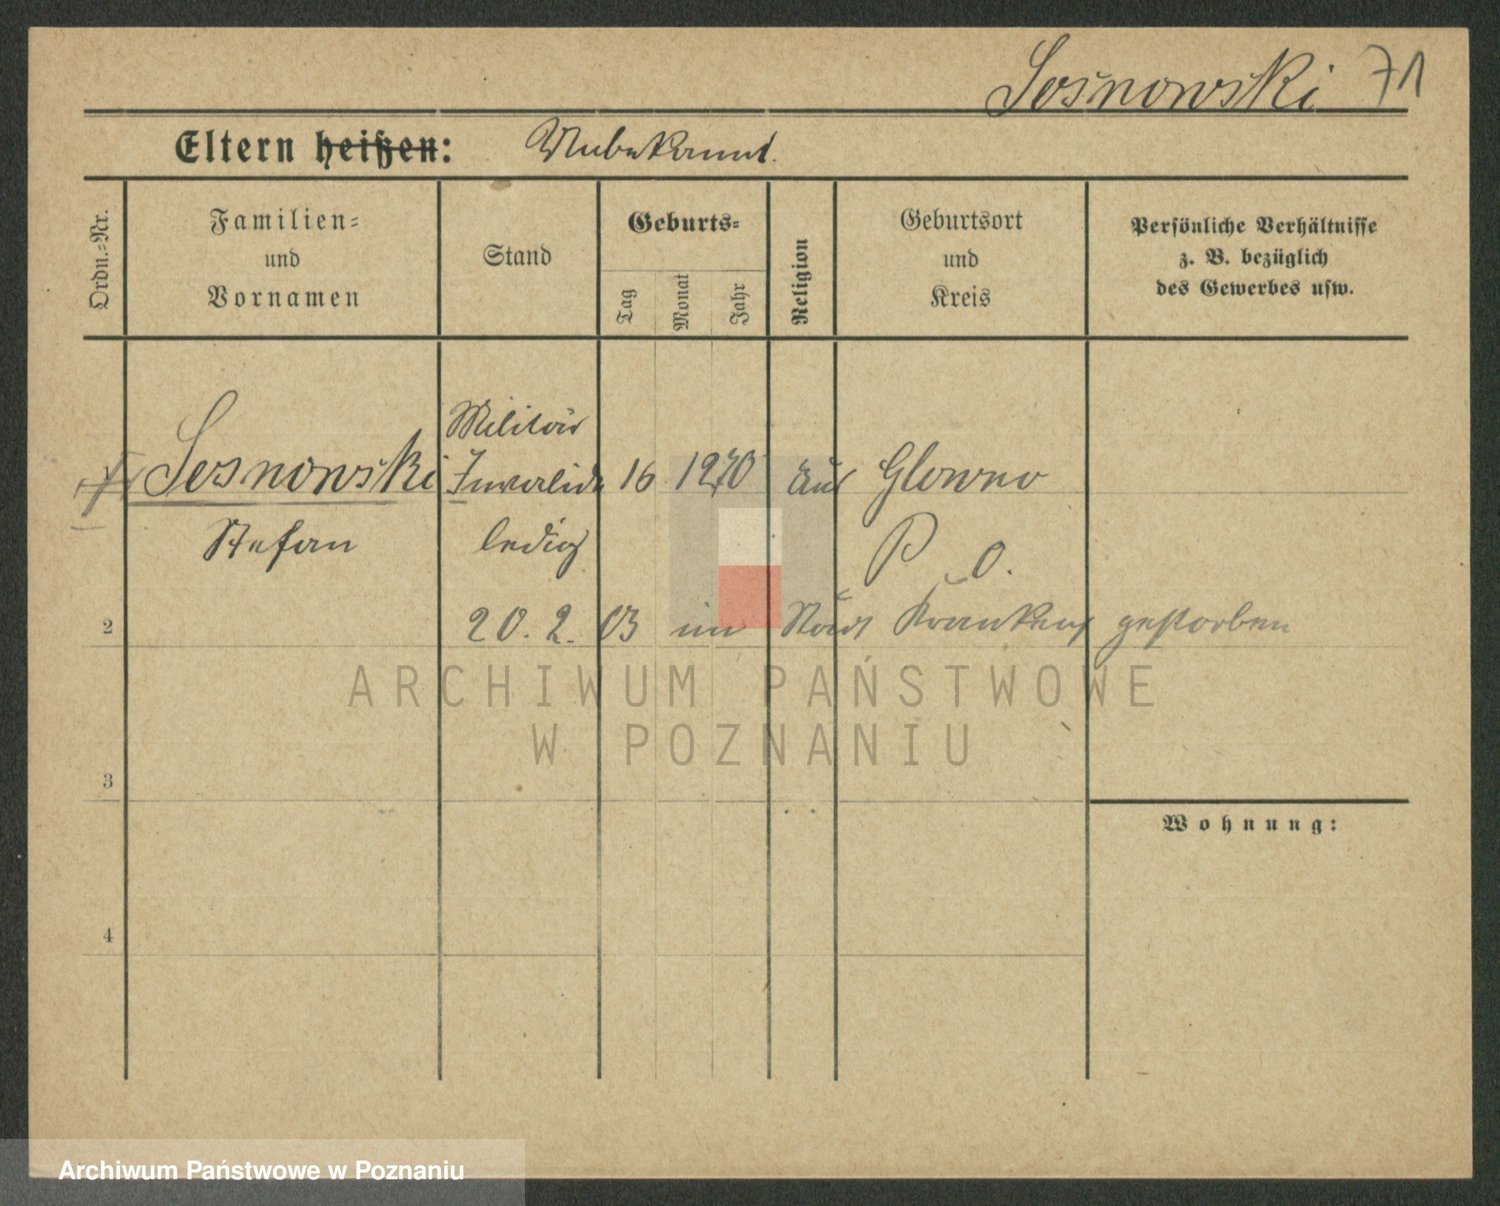 Sosnowski 71
Eltern heißen: Unbekannt.
Ordn.-Nr.
Familien-
und
Vornamen
Stand
Geburts-
Tag
Monat
Jahr
Religion
Geburtsort
und
Kreis
Persönliche Verhältnisse
z. B. bezüglich
des Gewerbes usw.
Militär
Sosnowski Invalide 16 12 70 Glowno
Stefan ledig P. O.
2 20. 2. 03 im Städt Krankenh gestorben
ARCHIWUM PAŃSTWOWE
W POZNANIU
3
Wohnung:
4
Archiwum Państwowe w Poznaniu